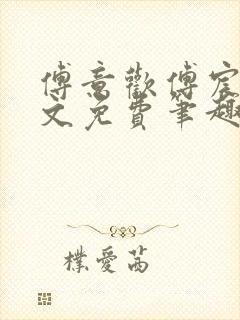 傅意歡傅宸
文免費筆趣
樸愛茜